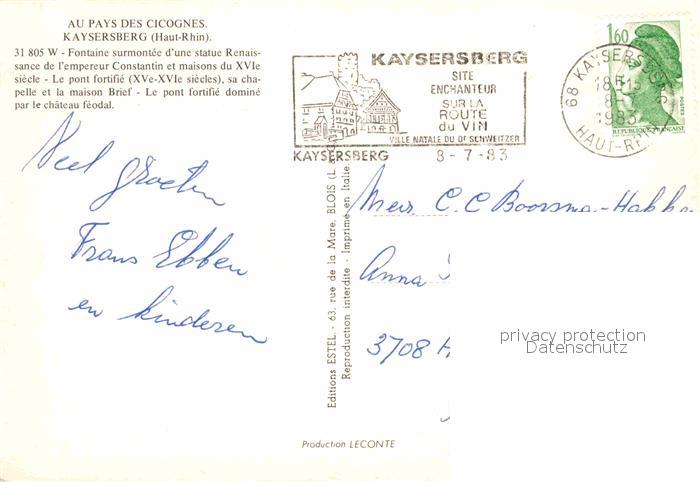 AU PAYS DES CICOGNES.
KAYSERSBERG (Haut-Rhin).
31 805 W - Fontaine surmontée d'une statue Renais-
sance de l'empereur Constantin et maisons du XVIe
siècle - Le pont fortifié (XVe-XVIe siècles), sa cha-
pelle et la maison Brief - Le pont fortifié dominé
par le château féodal.
KAYSERSBERG
SITE
ENCHANTEUR
SUR LA
ROUTE
du VIN
VILLE NATALE DU Dr SCHWEITZER
KAYSERSBERG 8-7-83
1,60
POSTES
REPUBLIQUE FRANÇAISE
68 KAYSERSBERG
18H15
8-7
1983
HAUT-RHIN
Veel groeten
Frans Ebben
en kinderen
Editions ESTEL - 63, rue de la Mare, BLOIS (L.
Reproduction interdite - Imprimé en Italie.
Mevr. C.C Boorsma-Hakke
Anna
3708 H
privacy protection
Datenschutz
Production LECONTE